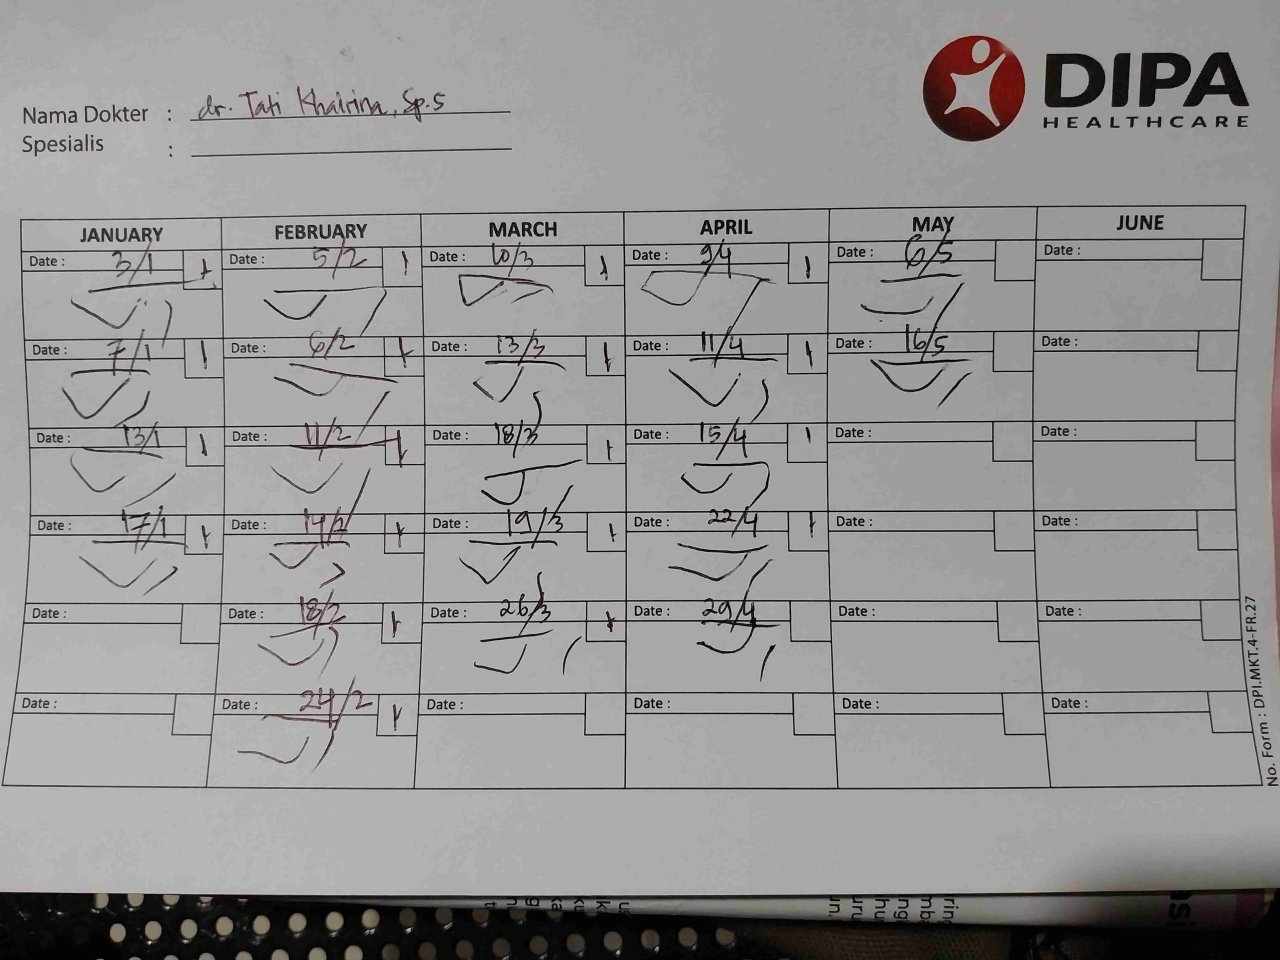 DIPA
HEALTHCARE
Nama Dokter : dr. Tati Khairina, Sp.S
Spesialis :
JANUARY FEBRUARY MARCH APRIL MAY JUNE
Date : 3/1 1 Date : 5/2 1 Date : 10/3 1 Date : 9/4 1 Date : 6/5 Date :
Date : 7/1 1 Date : 6/2 1 Date : 13/3 1 Date : 11/4 1 Date : 16/5 Date :
Date : 13/1 1 Date : 11/2 1 Date : 18/3 1 Date : 15/4 1 Date : Date :
Date : 17/1 1 Date : 14/2 1 Date : 19/3 1 Date : 22/4 1 Date : Date :
Date : Date : 18/2 1 Date : 26/3 1 Date : 29/4 Date : Date :
Date : Date : 24/2 1 Date : Date : Date : Date :
No. Form : DPI.MKT.4-FR.27